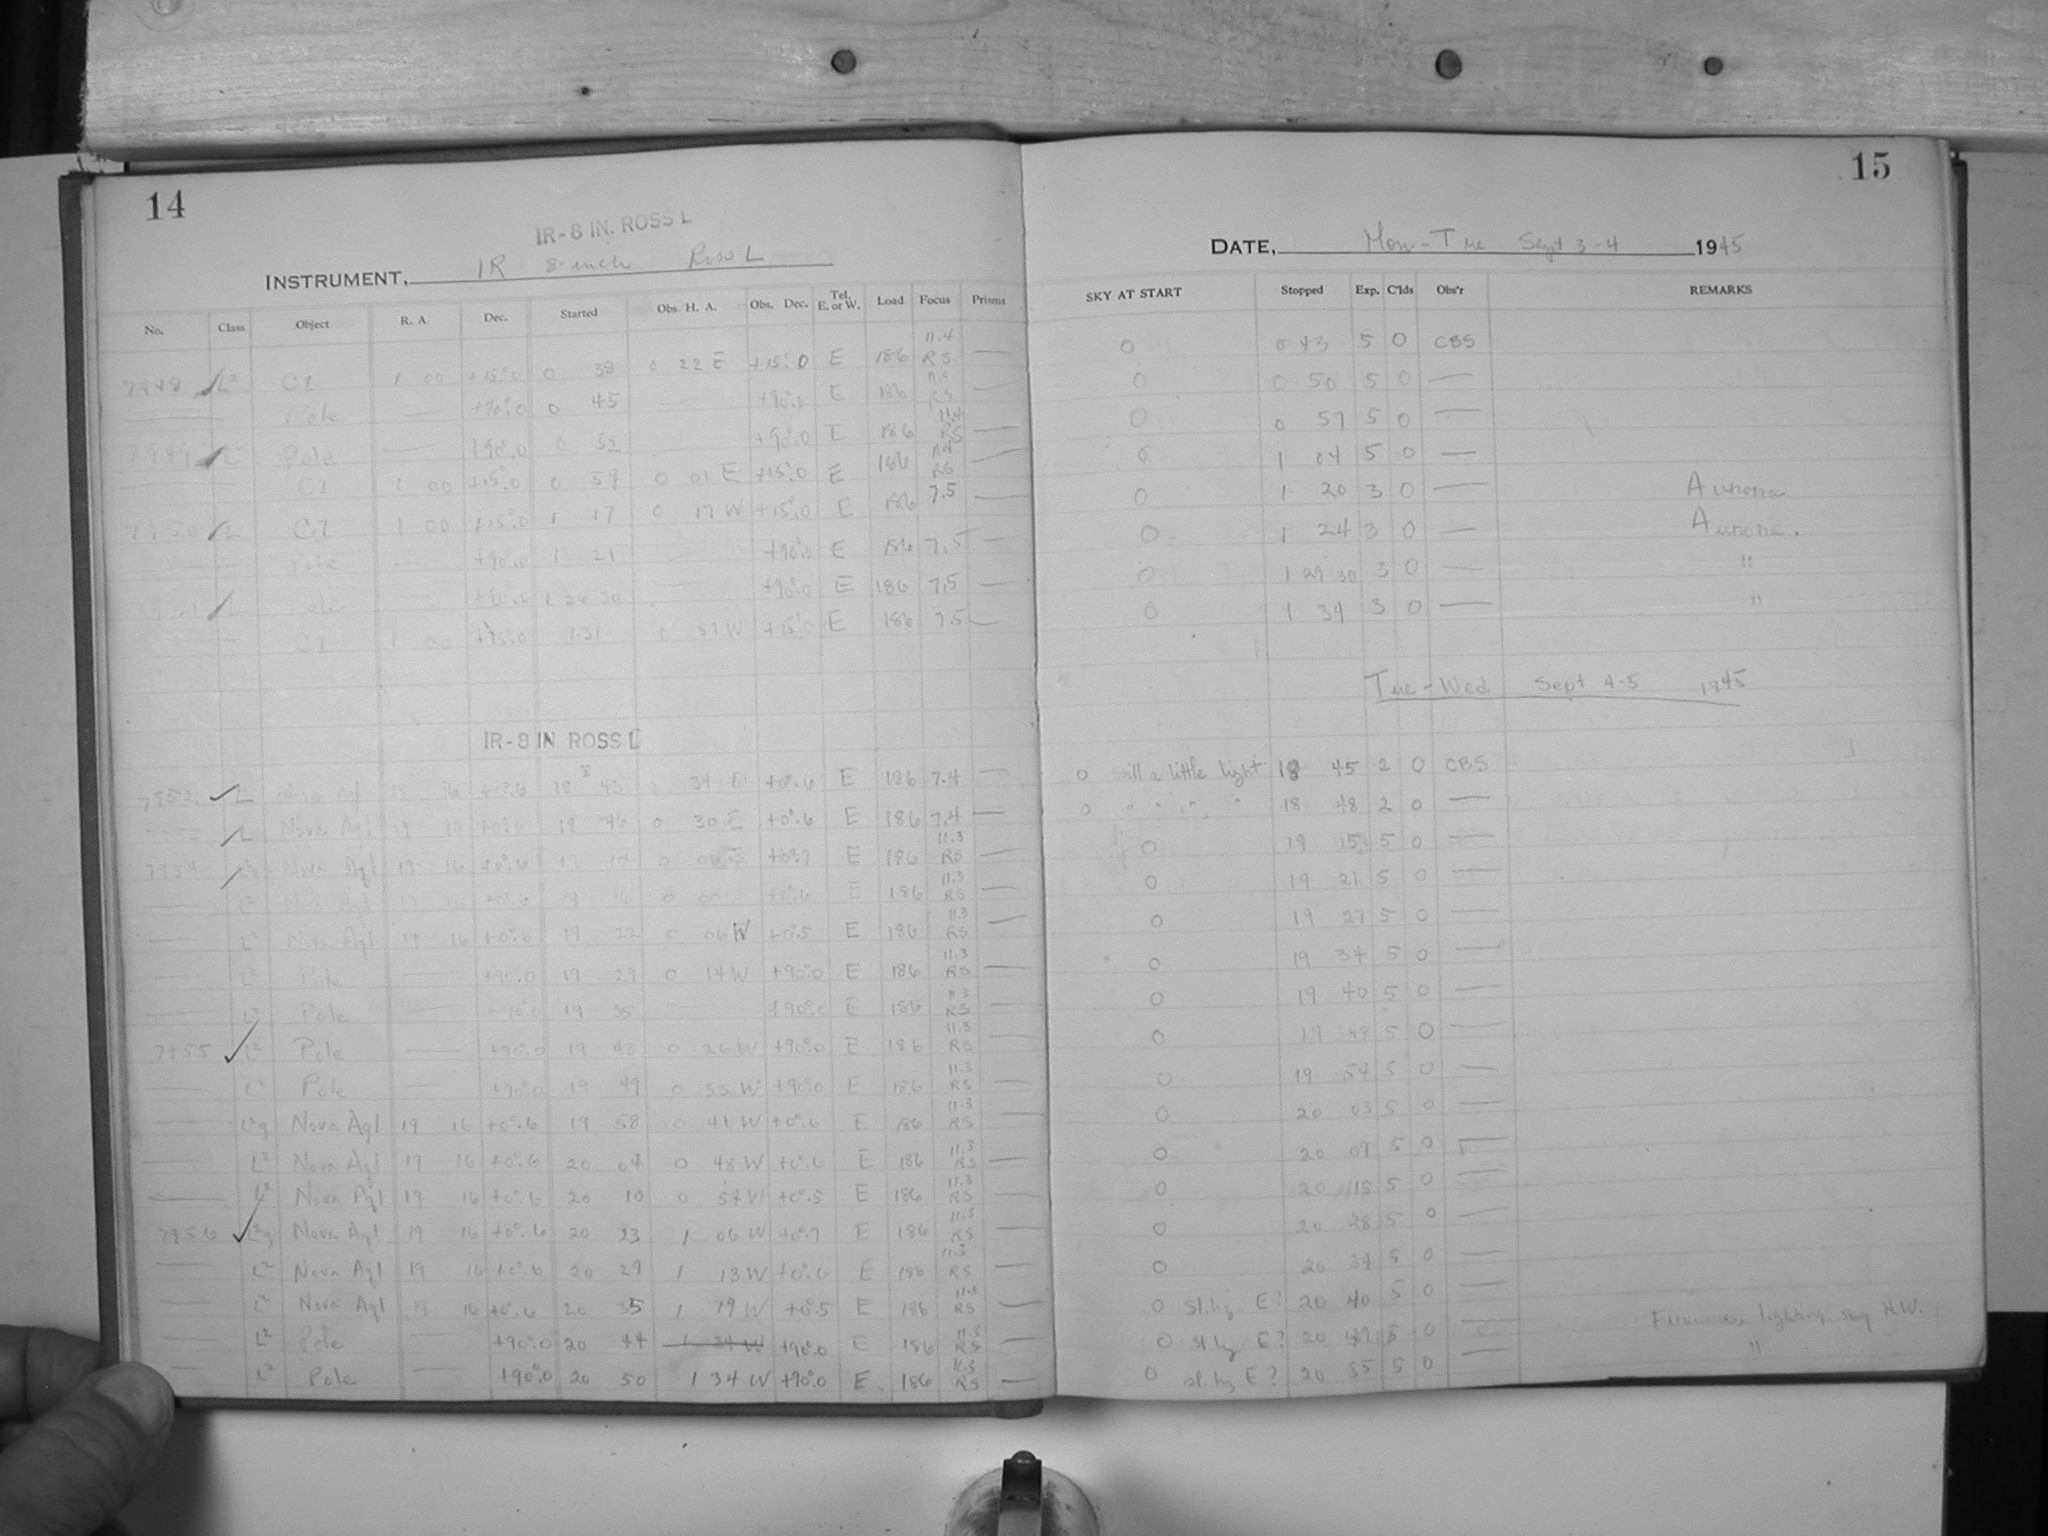 14
IR-8 IN. ROSS L
INSTRUMENT, IR 8-inch Ross L
No. Class Object R. A. Dec. Started Obs H. A. Obs. Dec. Tel. E. or W. Load Focus Prisms
7948 L² C1 1 00 +15°.0 0 38 0 22 E +15°.0 E 186 11.4 RS —
— Pole — +90°.0 0 45 — +90°.0 E 186 RS —
7949 L² Pole — +90°.0 0 52 — +90°.0 E 186 11.4 RS —
C1 1 00 +15°.0 0 59 0 01 E +15°.0 E 186 11.4 RS —
7950 L C1 1 00 +15°.0 1 17 0 17 W +15°.0 E 186 7.5 —
Pole — +90°.0 1 21 — +90°.0 E 186 7.5 —
L Pole — +90°.0 1 26 30 +90°.0 E 186 7.5 —
C1 1 00 +15°.0 1 31 0 31 W +15°.0 E 186 7.5 —
IR-8 IN. ROSS L
7952 L Nova Aql 19 16 +0°.6 18 43 0 34 E +0°.6 E 186 7.4 —
L Nova Aql 19 16 +0°.6 18 46 0 30 E +0°.6 E 186 7.4 —
7954 Nova Aql 19 16 +0°.6 19 10 0 +0°.7 E 186 11.3 RS —
— L² Nova Aql 19 16 +0°.6 19 16 0 +0°.6 E 186 11.3 RS —
— L² Nova Aql 19 16 +0°.6 19 22 0 06 W +0°.5 E 186 11.3 RS —
— L² Pole — +90°.0 19 29 0 14 W +90°.0 E 186 11.3 RS —
— L² Pole — +90°.0 19 35 — +90°.0 E 186 RS —
7955 L² Pole — +90°.0 19 43 0 26 W +90°.0 E 186 11.3 RS —
— L² Pole — +90°.0 19 49 0 33 W +90°.0 E 186 11.3 RS —
— L²g Nova Aql 19 16 +0°.6 19 58 0 41 W +0°.6 E 186 11.3 RS —
— L² Nova Aql 19 16 +0°.6 20 04 0 48 W +0°.6 E 186 11.3 RS —
— L² Nova Aql 19 16 +0°.6 20 10 0 54 W +0°.5 E 186 11.3 RS —
7956 L²g Nova Aql 19 16 +0°.6 20 23 1 06 W +0°.7 E 186 11.3 RS —
— L² Nova Aql 19 16 +0°.6 20 29 1 13 W +0°.6 E 186 11.3 RS —
— L² Nova Aql 19 16 +0°.6 20 35 1 19 W +0°.5 E 186 11.3 RS —
— L² Pole — +90°.0 20 44 +90°.0 E 186 11.3 RS —
— L² Pole — +90°.0 20 50 1 34 W +90°.0 E 186 11.3 RS —
15
DATE, Mon-Tue Sept 3-4 1945
SKY AT START Stopped Exp. C'lds Obs'r REMARKS
0 0 43 5 0 CBS
0 0 50 5 0 —
0 0 57 5 0 —
0 1 04 5 0 —
0 1 20 3 0 — Aurora
0 1 24 3 0 — Aurora.
0 1 29 30 3 0 — "
0 1 34 3 0 — "
Tue-Wed Sept 4-5 1945
0 still a little light 18 45 2 0 CBS
0 " " " " 18 48 2 0 —
0 19 15 5 0 —
0 19 21 5 0 —
0 19 27 5 0 —
0 19 34 5 0 —
0 19 40 5 0 —
0 19 48 5 0 —
0 19 54 5 0 —
0 20 03 5 0 —
0 20 09 5 0 —
0 20 15 5 0 —
0 20 28 5 0 —
0 20 34 5 0 —
0 sl. hz E? 20 40 5 0 —
0 sl hz E? 20 49 5 0 — lighting sky N.W.
0 sl. hz E? 20 55 5 0 — "